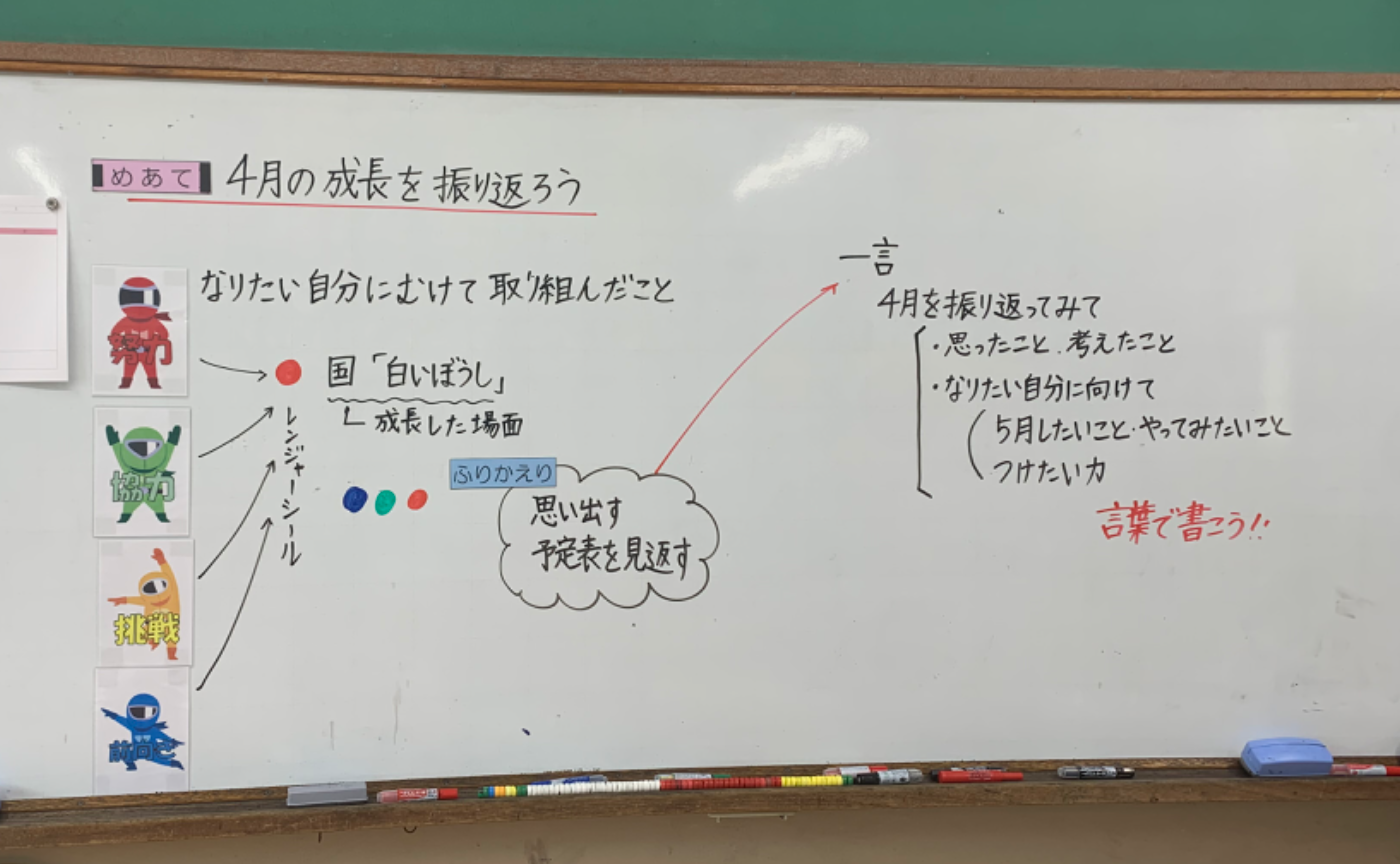 めあて 4月の成長を振り返ろう
なりたい自分にむけて取り組んだこと
努力
協力
挑戦
前向き
レンジャーシール
国「白いぼうし」
成長した場面
ふりかえり
思い出す
予定表を見返す
一言
4月を振り返ってみて
・思ったこと、考えたこと
・なりたい自分に向けて
5月したいこと・やってみたいこと
つけたい力
言葉で書こう!!